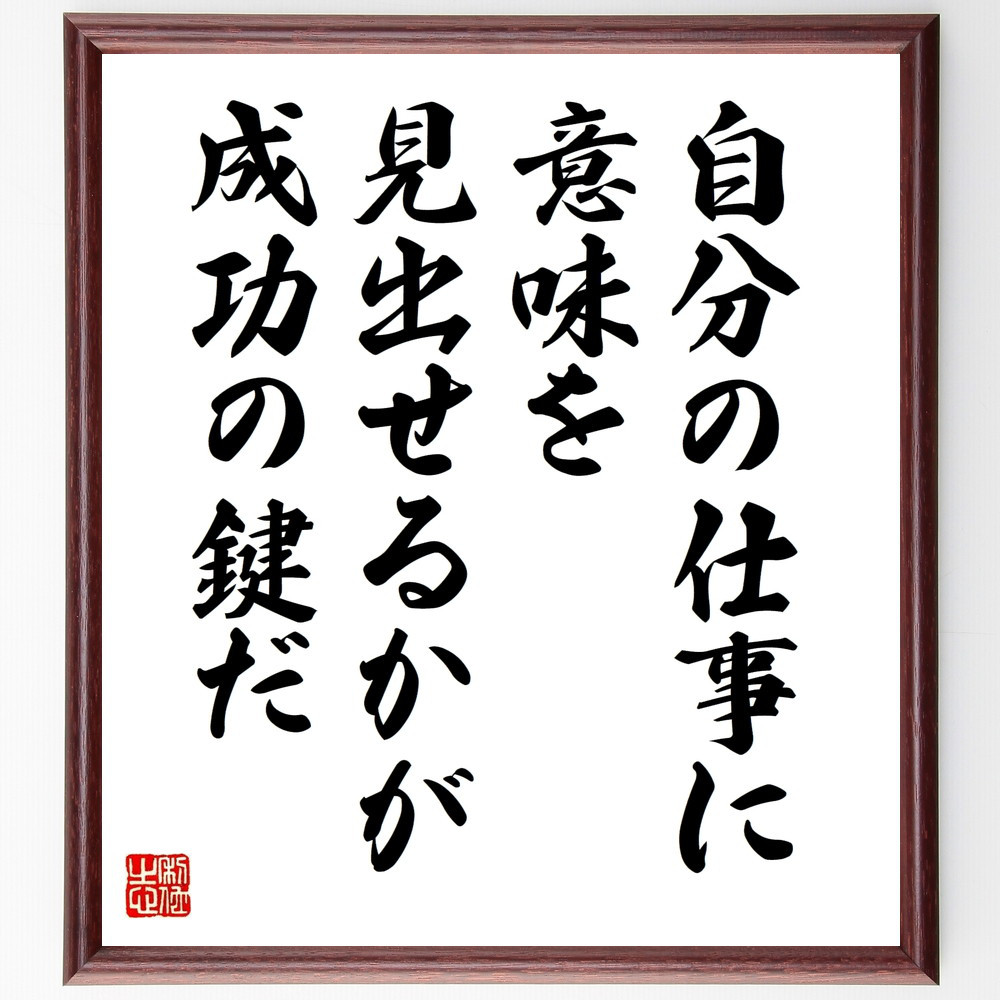 自分の仕事に
意味を
見出せるかが
成功の鍵だ